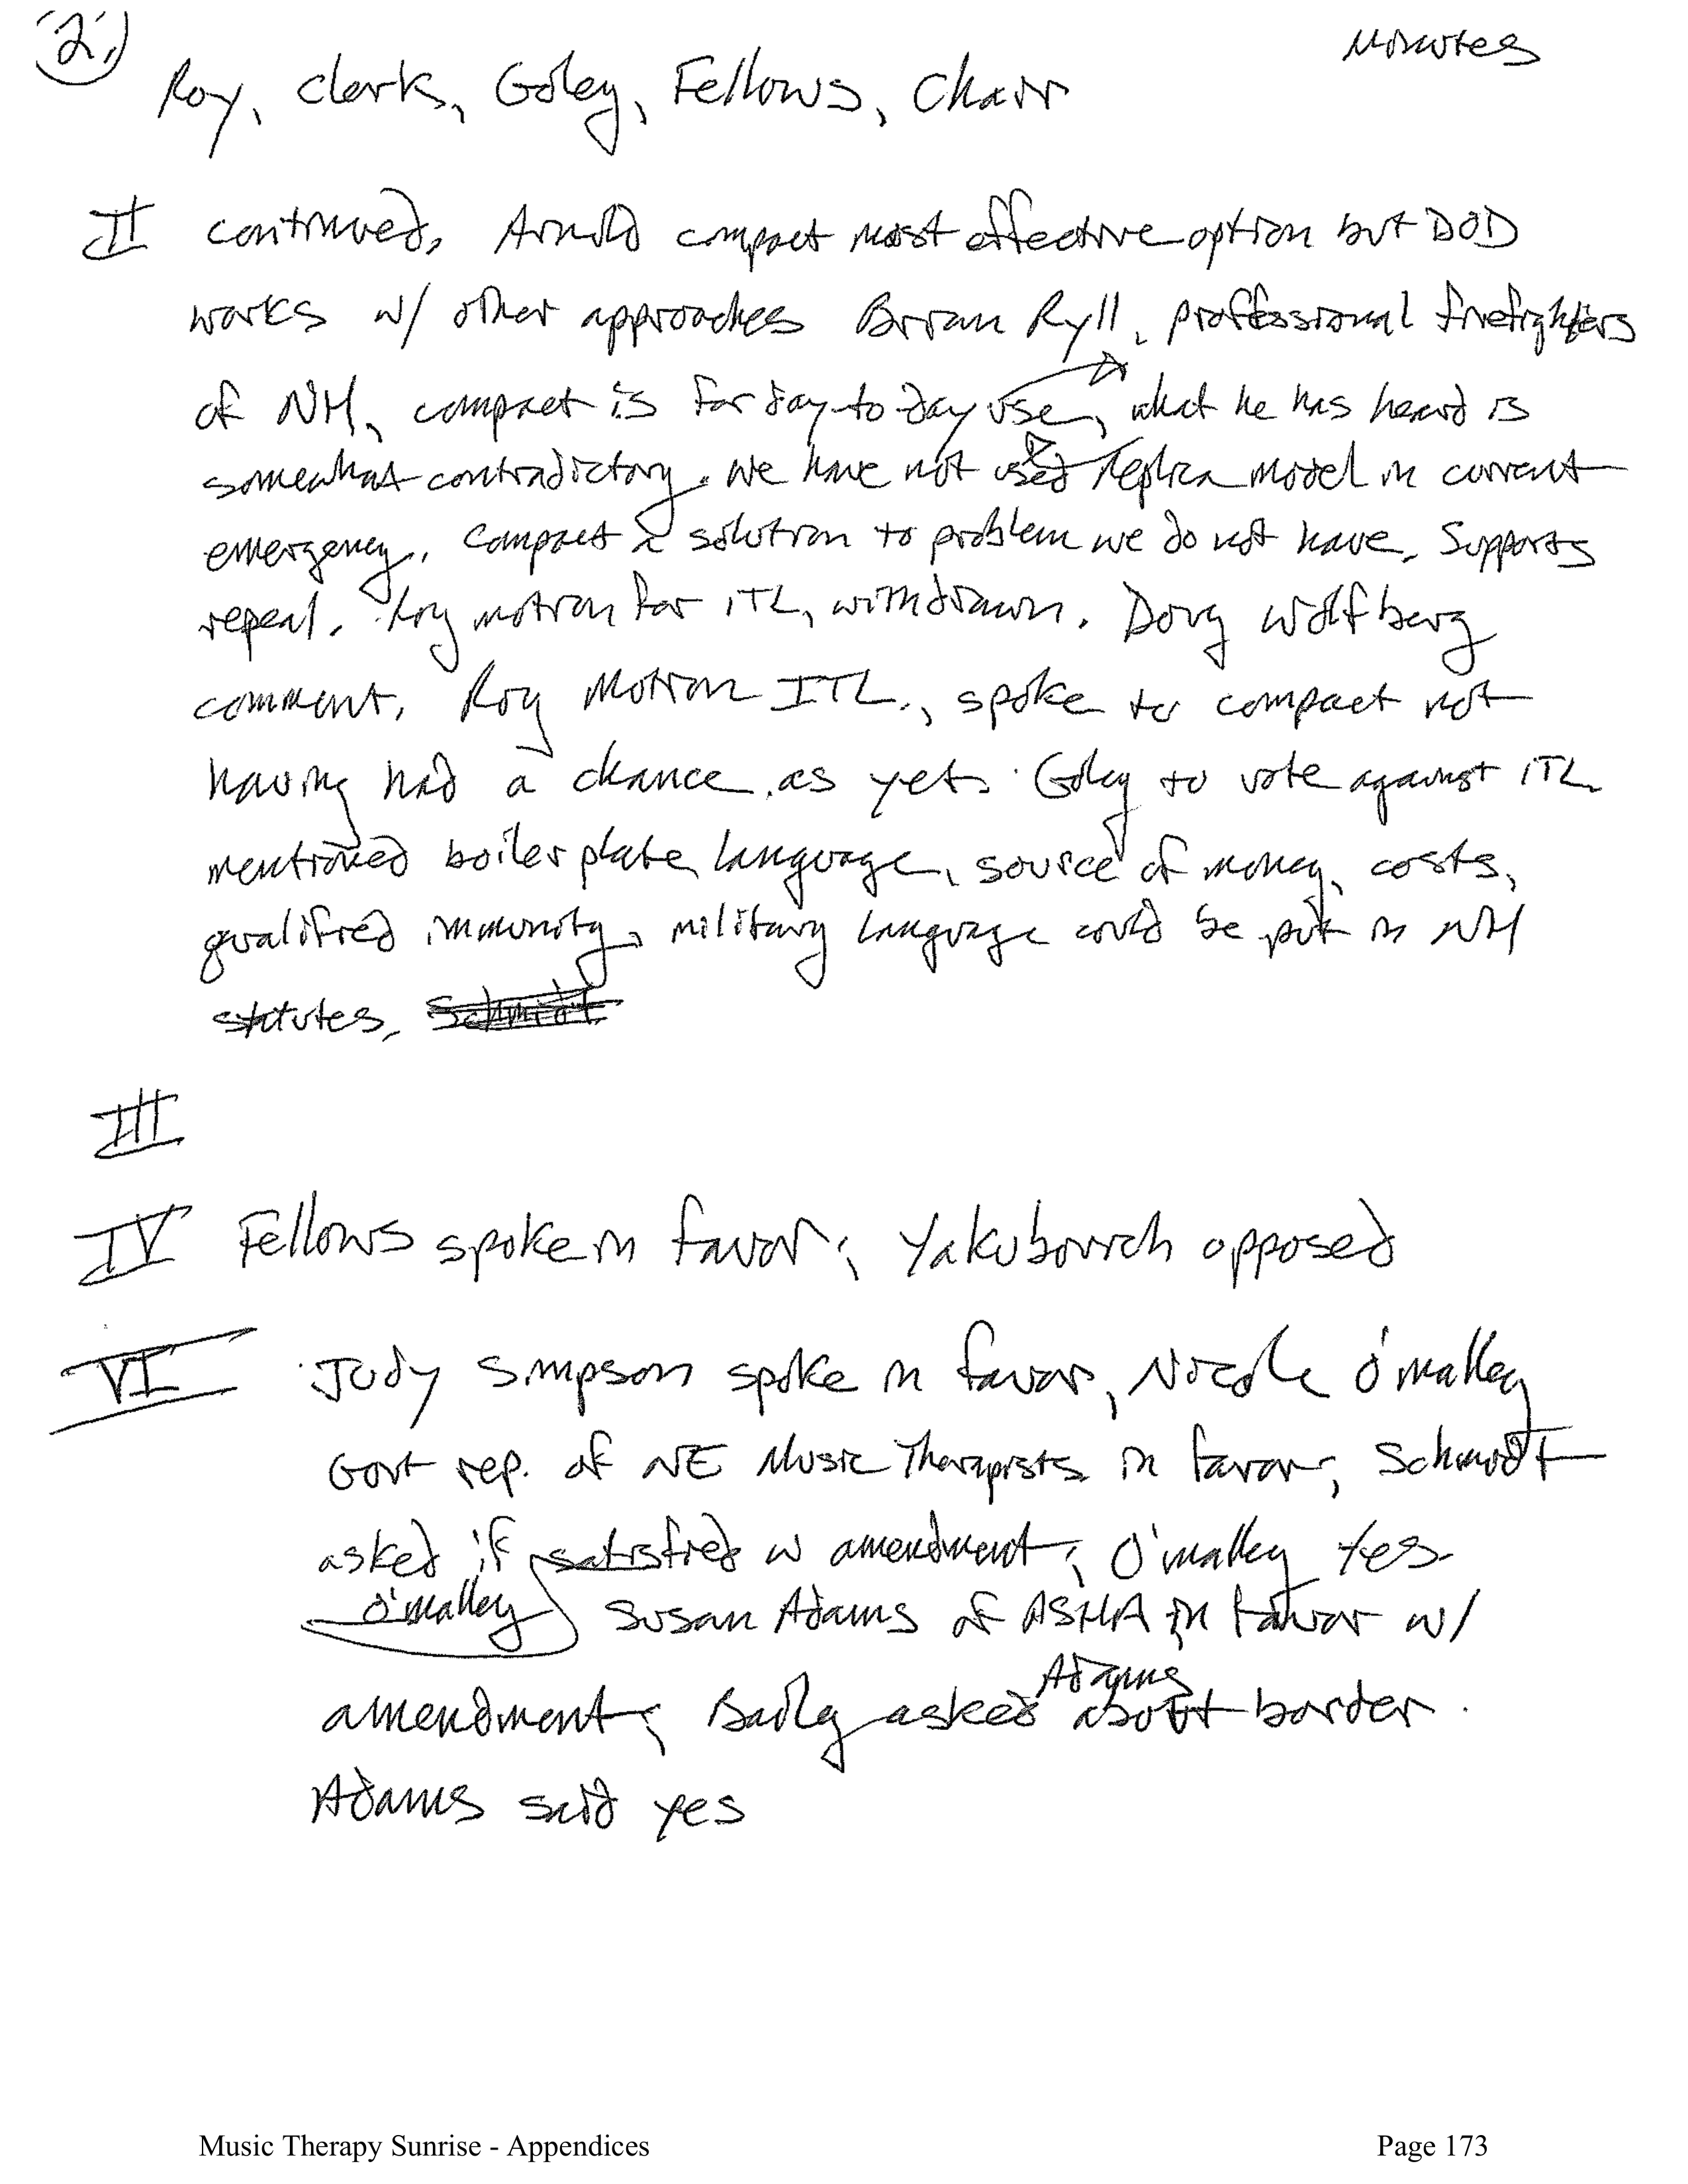 2.)
Minutes
Roy, Clerk, Goley, Fellows, Chair
II continued, Arnold compact most effective option but DOD
works w/ other approaches Brian Ryll, professional firefighters
of NH, compact is for day-to-day use, what he has heard is
somewhat contradictory. We have not used Replica model in current
emergency. Compact a solution to problem we do not have. Supports
repeal. Roy motion for ITL, withdrawn. Doug Wolfberg
comment. Roy Motion ITL., spoke to compact not
having had a chance as yet. Goley to vote against ITL
mentioned boiler plate language, source of money, costs,
qualified immunity, military language could be put in NH
statutes, Schmidt
III
IV Fellows spoke in favor; Yakubovich opposed
VI Judy Simpson spoke in favor, Nicole O'Malley
Govt rep. of NE Music Therapists in favor; Schmidt
asked if satisfied w amendment; O'Malley Yes
O'Malley Susan Adams of ASHA in favor w/
Adams
amendment; Bailey asked about border.
Adams said yes
Music Therapy Sunrise - Appendices Page 173